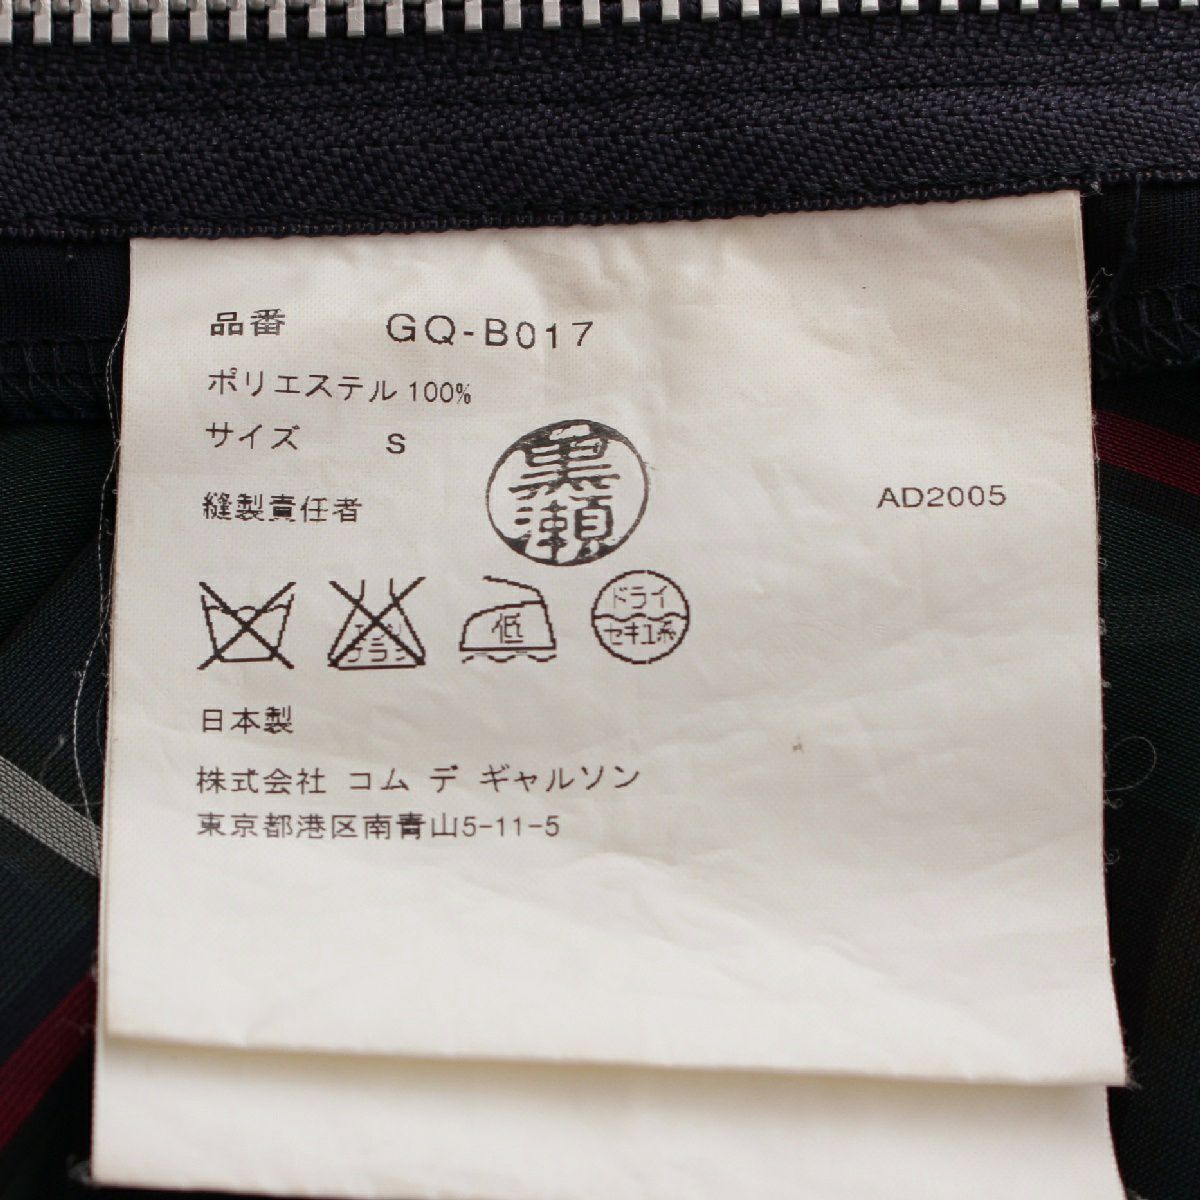 品番 GQ-B017
ポリエステル 100%
サイズ S
縫製責任者 黒瀬 AD2005
エンソ サラシ 低 ドライ セキユ系
日本製
株式会社 コム デ ギャルソン
東京都港区南青山5-11-5